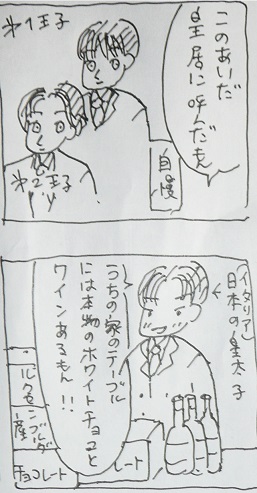 このあいだ
皇居に呼んだもん
第1王子
第2王子
自慢
イタリア
日本の皇太子
うちの家のテーブル
には本物のホワイトチョコと
ワインあるもん!!
ルクセンブルグ
産
チョコレート
レート